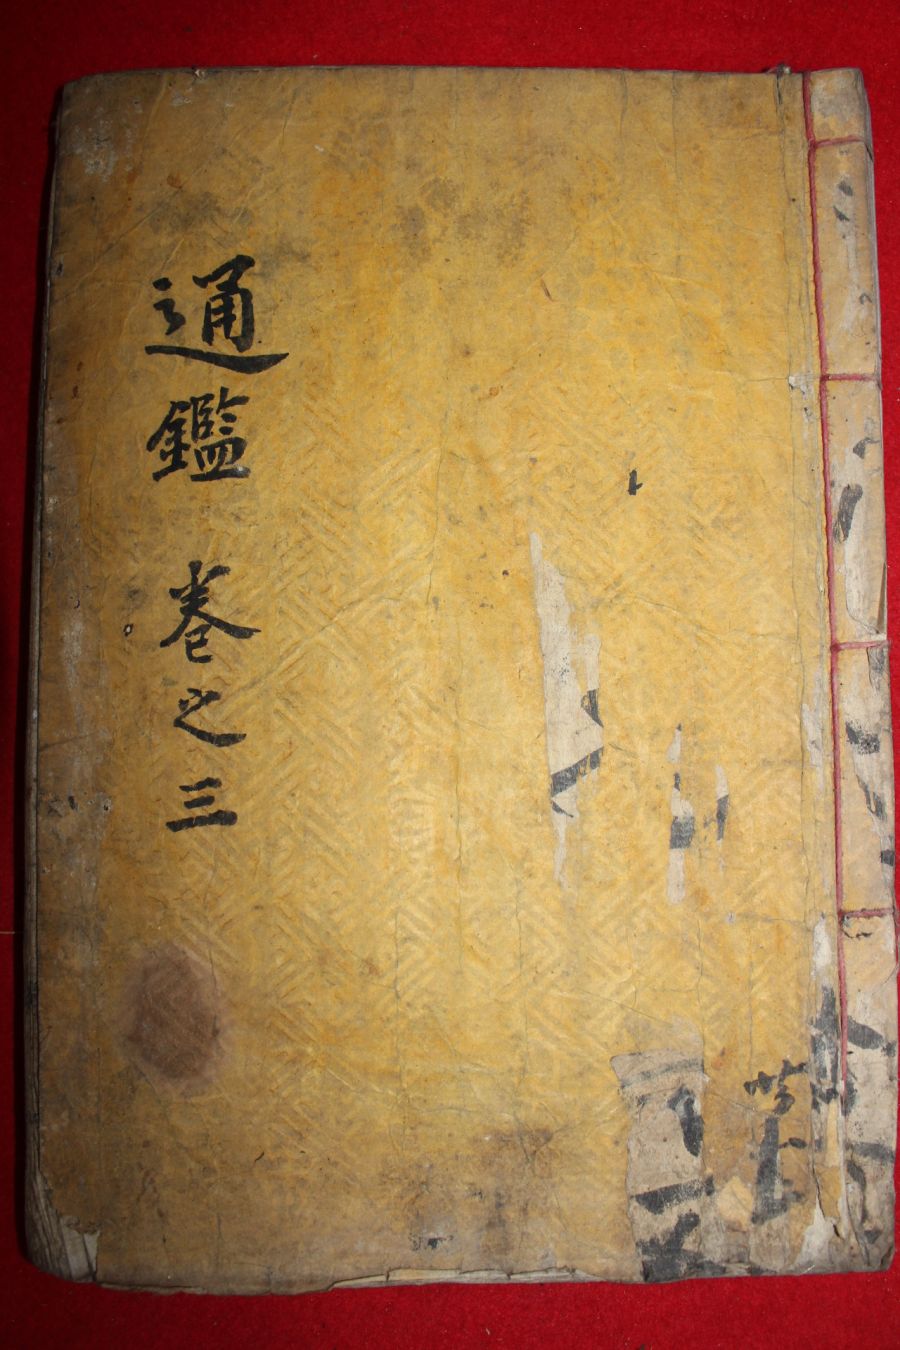 通鑑 巻之三